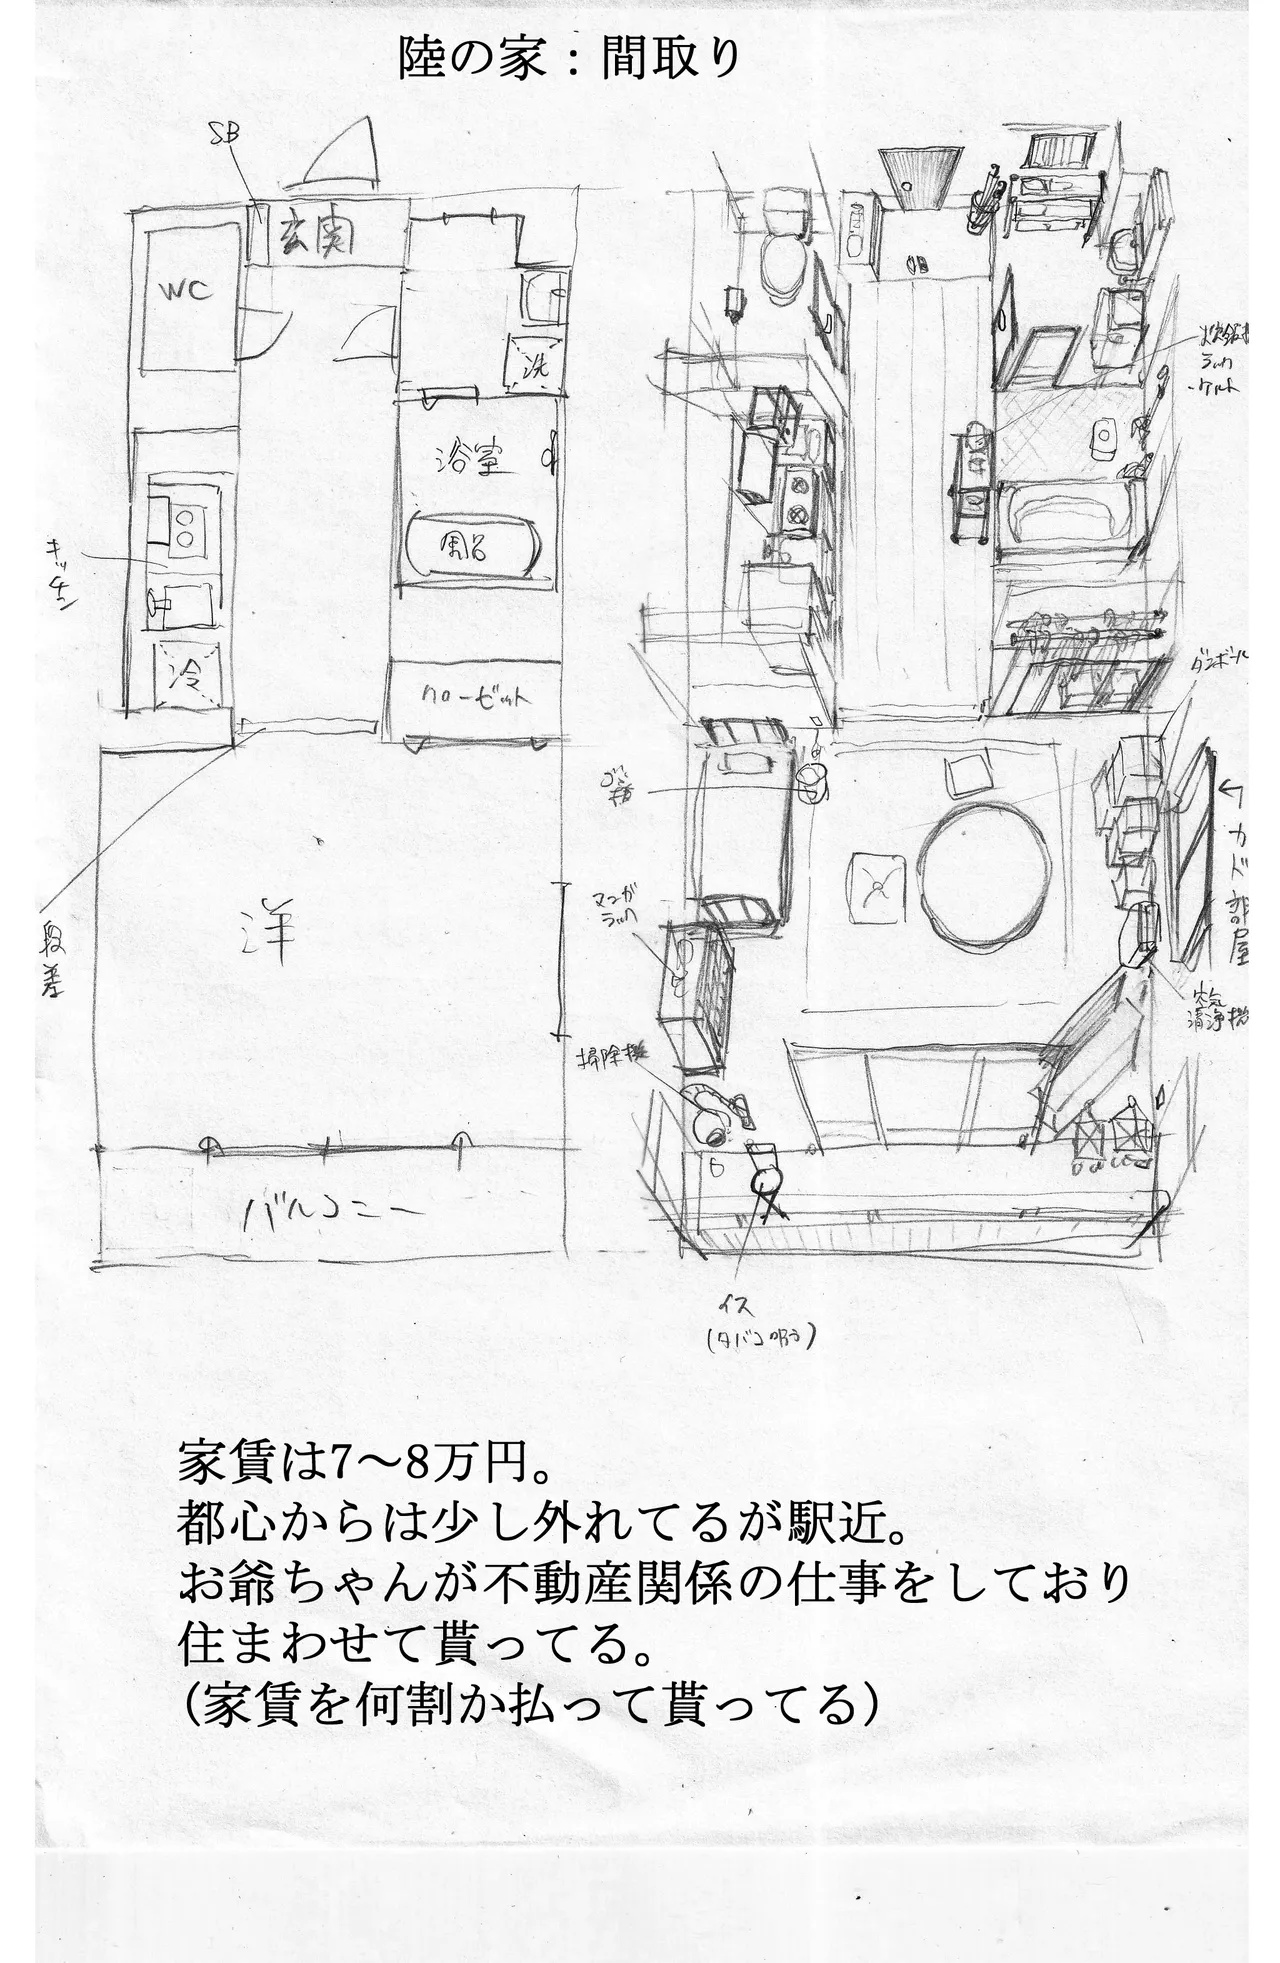 陸の家：間取り
SB
玄関
WC
洗
浴室
風呂
キッチン
冷
クローゼット
洋
段差
バルコニー
炊飯器
ラック
ケルト
ダンボール
ゴミ
箱
←カド部屋
マンガ
ラック
空気
清浄機
掃除機
イス
(タバコ吸う)
家賃は7〜8万円。
都心からは少し外れてるが駅近。
お爺ちゃんが不動産関係の仕事をしており
住まわせて貰ってる。
（家賃を何割か払って貰ってる）